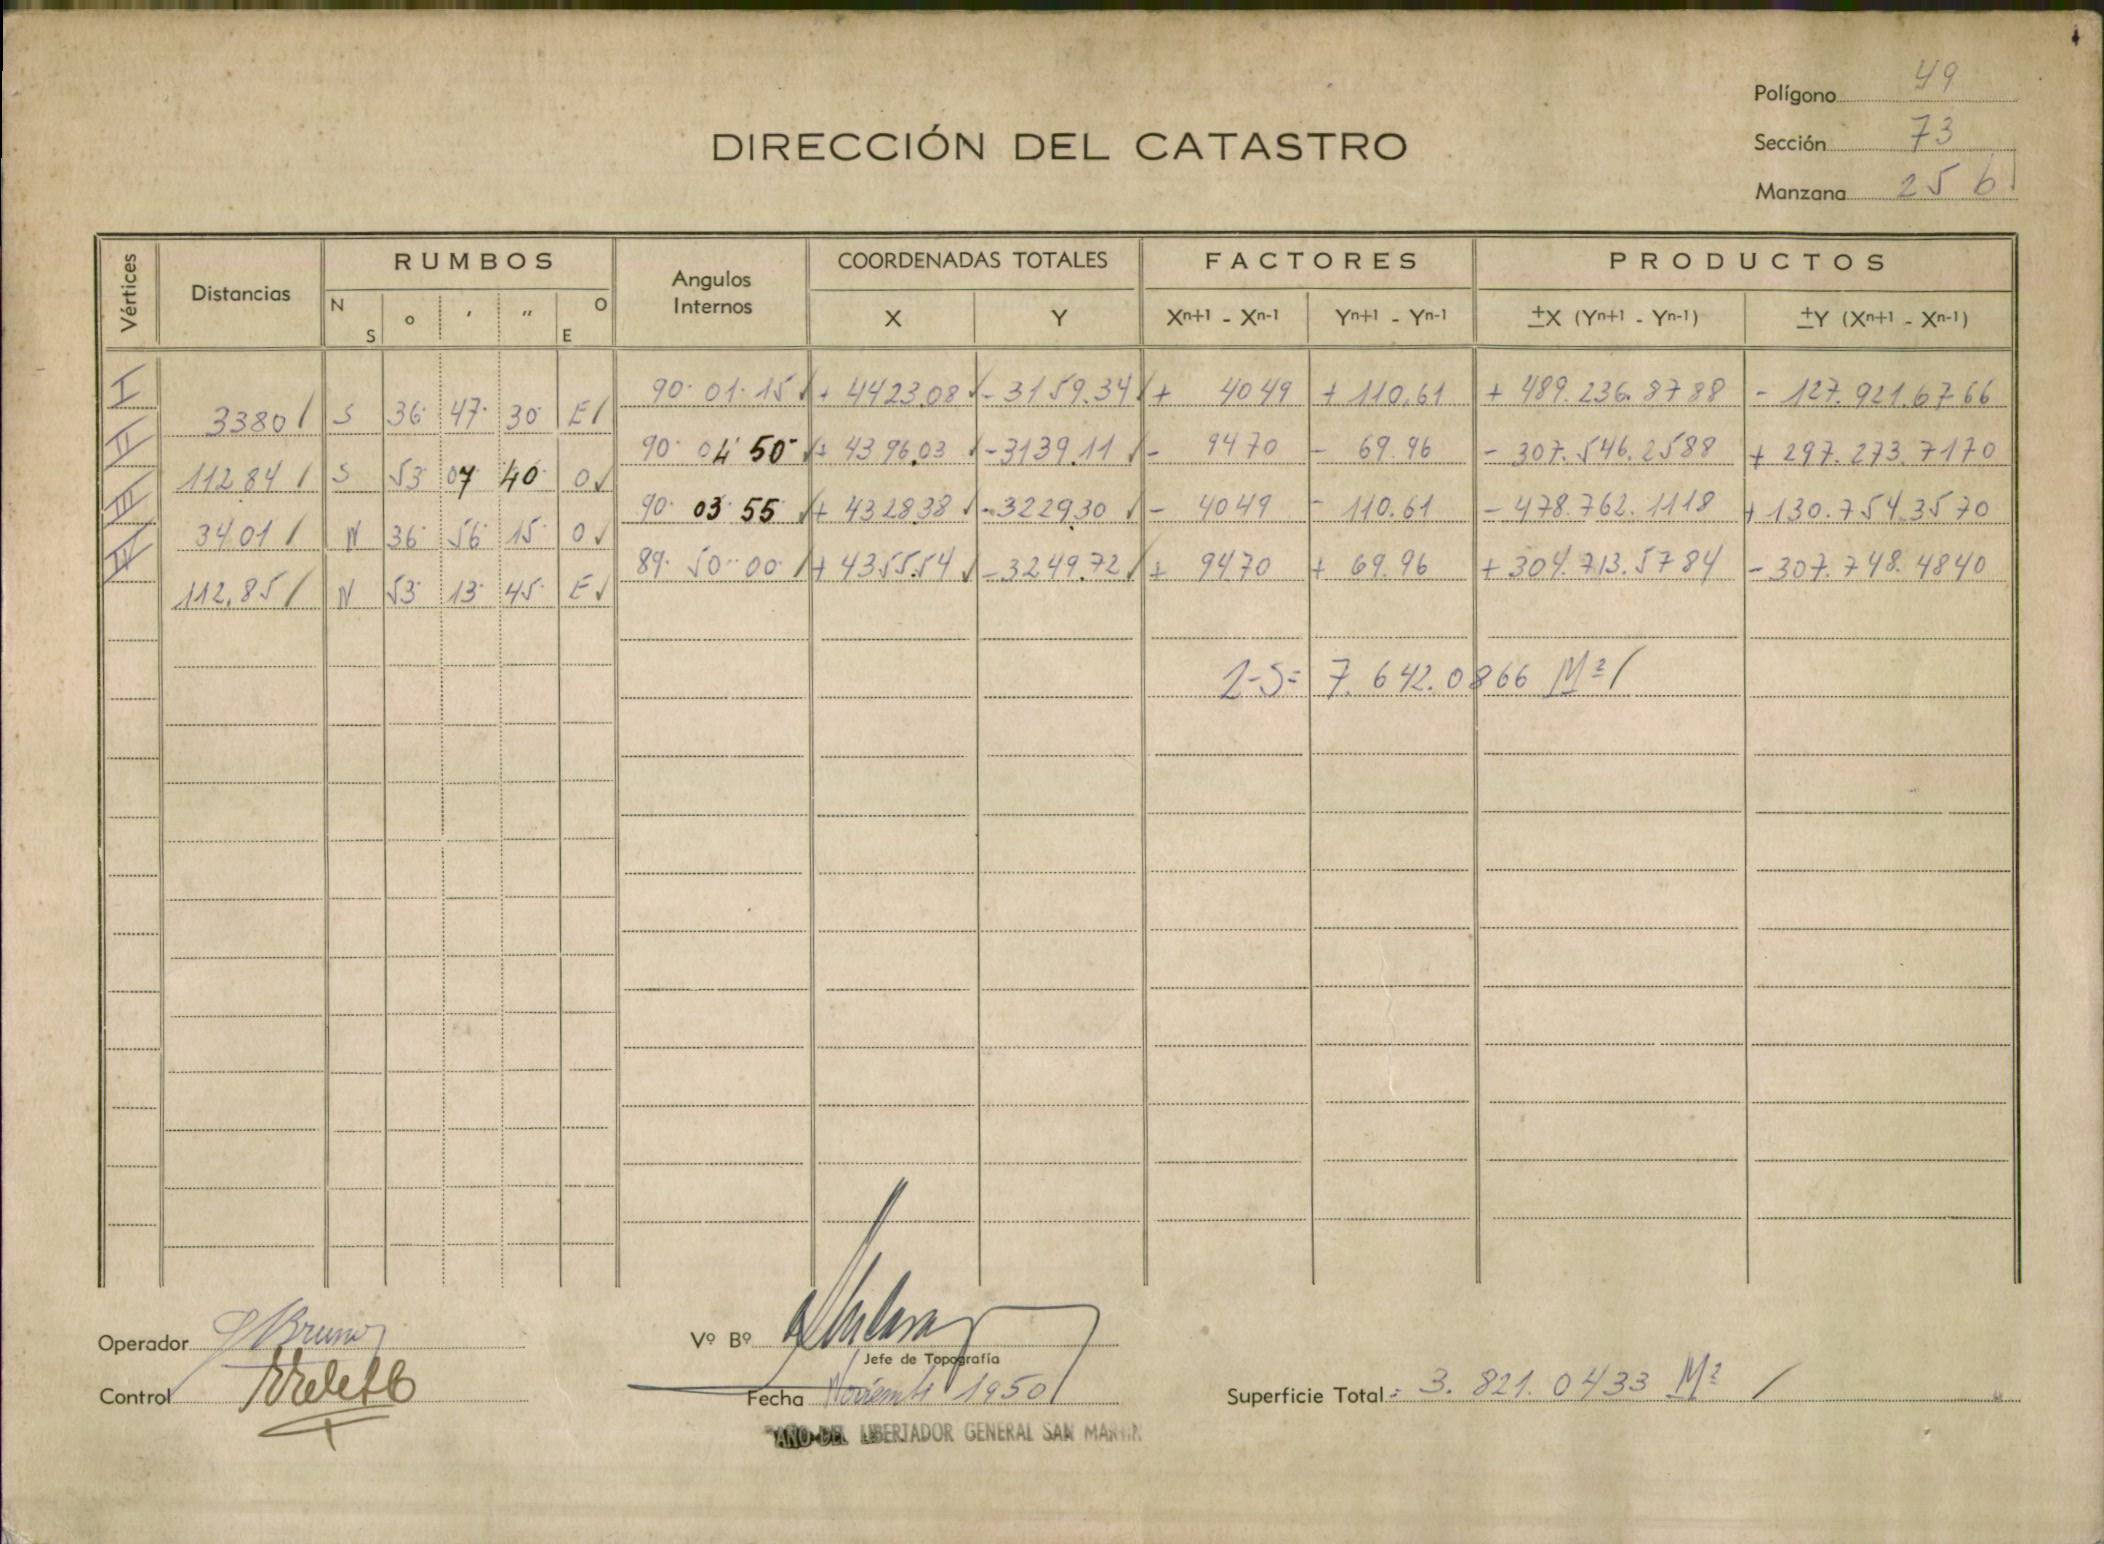 Polígono 49
DIRECCIÓN DEL CATASTRO
Sección 73
Manzana 25 b
Vértices Distancias RUMBOS Angulos Internos COORDENADAS TOTALES FACTORES PRODUCTOS
N S ° ′ ″ O E X Y Xn+1 - Xn-1 Yn+1 - Yn-1 ±X (Yn+1 - Yn-1) ±Y (Xn+1 - Xn-1)
I 90· 01· 15 + 4423.08 - 3159.34 + 4049 + 110.61 + 489.236.8788 - 127.921.6766
3380 S 36· 47· 30· E
II 90· 04' 50" + 4396.03 - 3139.11 - 9470 - 69.96 - 307.546.2588 + 297.273.7170
112.84 S 53· 07 40· O
III 90· 03· 55 + 4328.38 - 3229.30 - 4049 - 110.61 - 478.762.1118 + 130.754.3570
34.01 N 36· 56· 15· O
IV 89· 50·· 00· + 4355.54 - 3249.72 + 9470 + 69.96 + 304.713.5784 - 307.748.4840
112.85 N 53· 13· 45· E
2-S= 7.642.0866 M²
Operador Bruno
Vº Bº
Jefe de Topografía
Control
Fecha 1950
Superficie Total = 3.821.0433 M²
AÑO DEL LIBERTADOR GENERAL SAN MARTIN